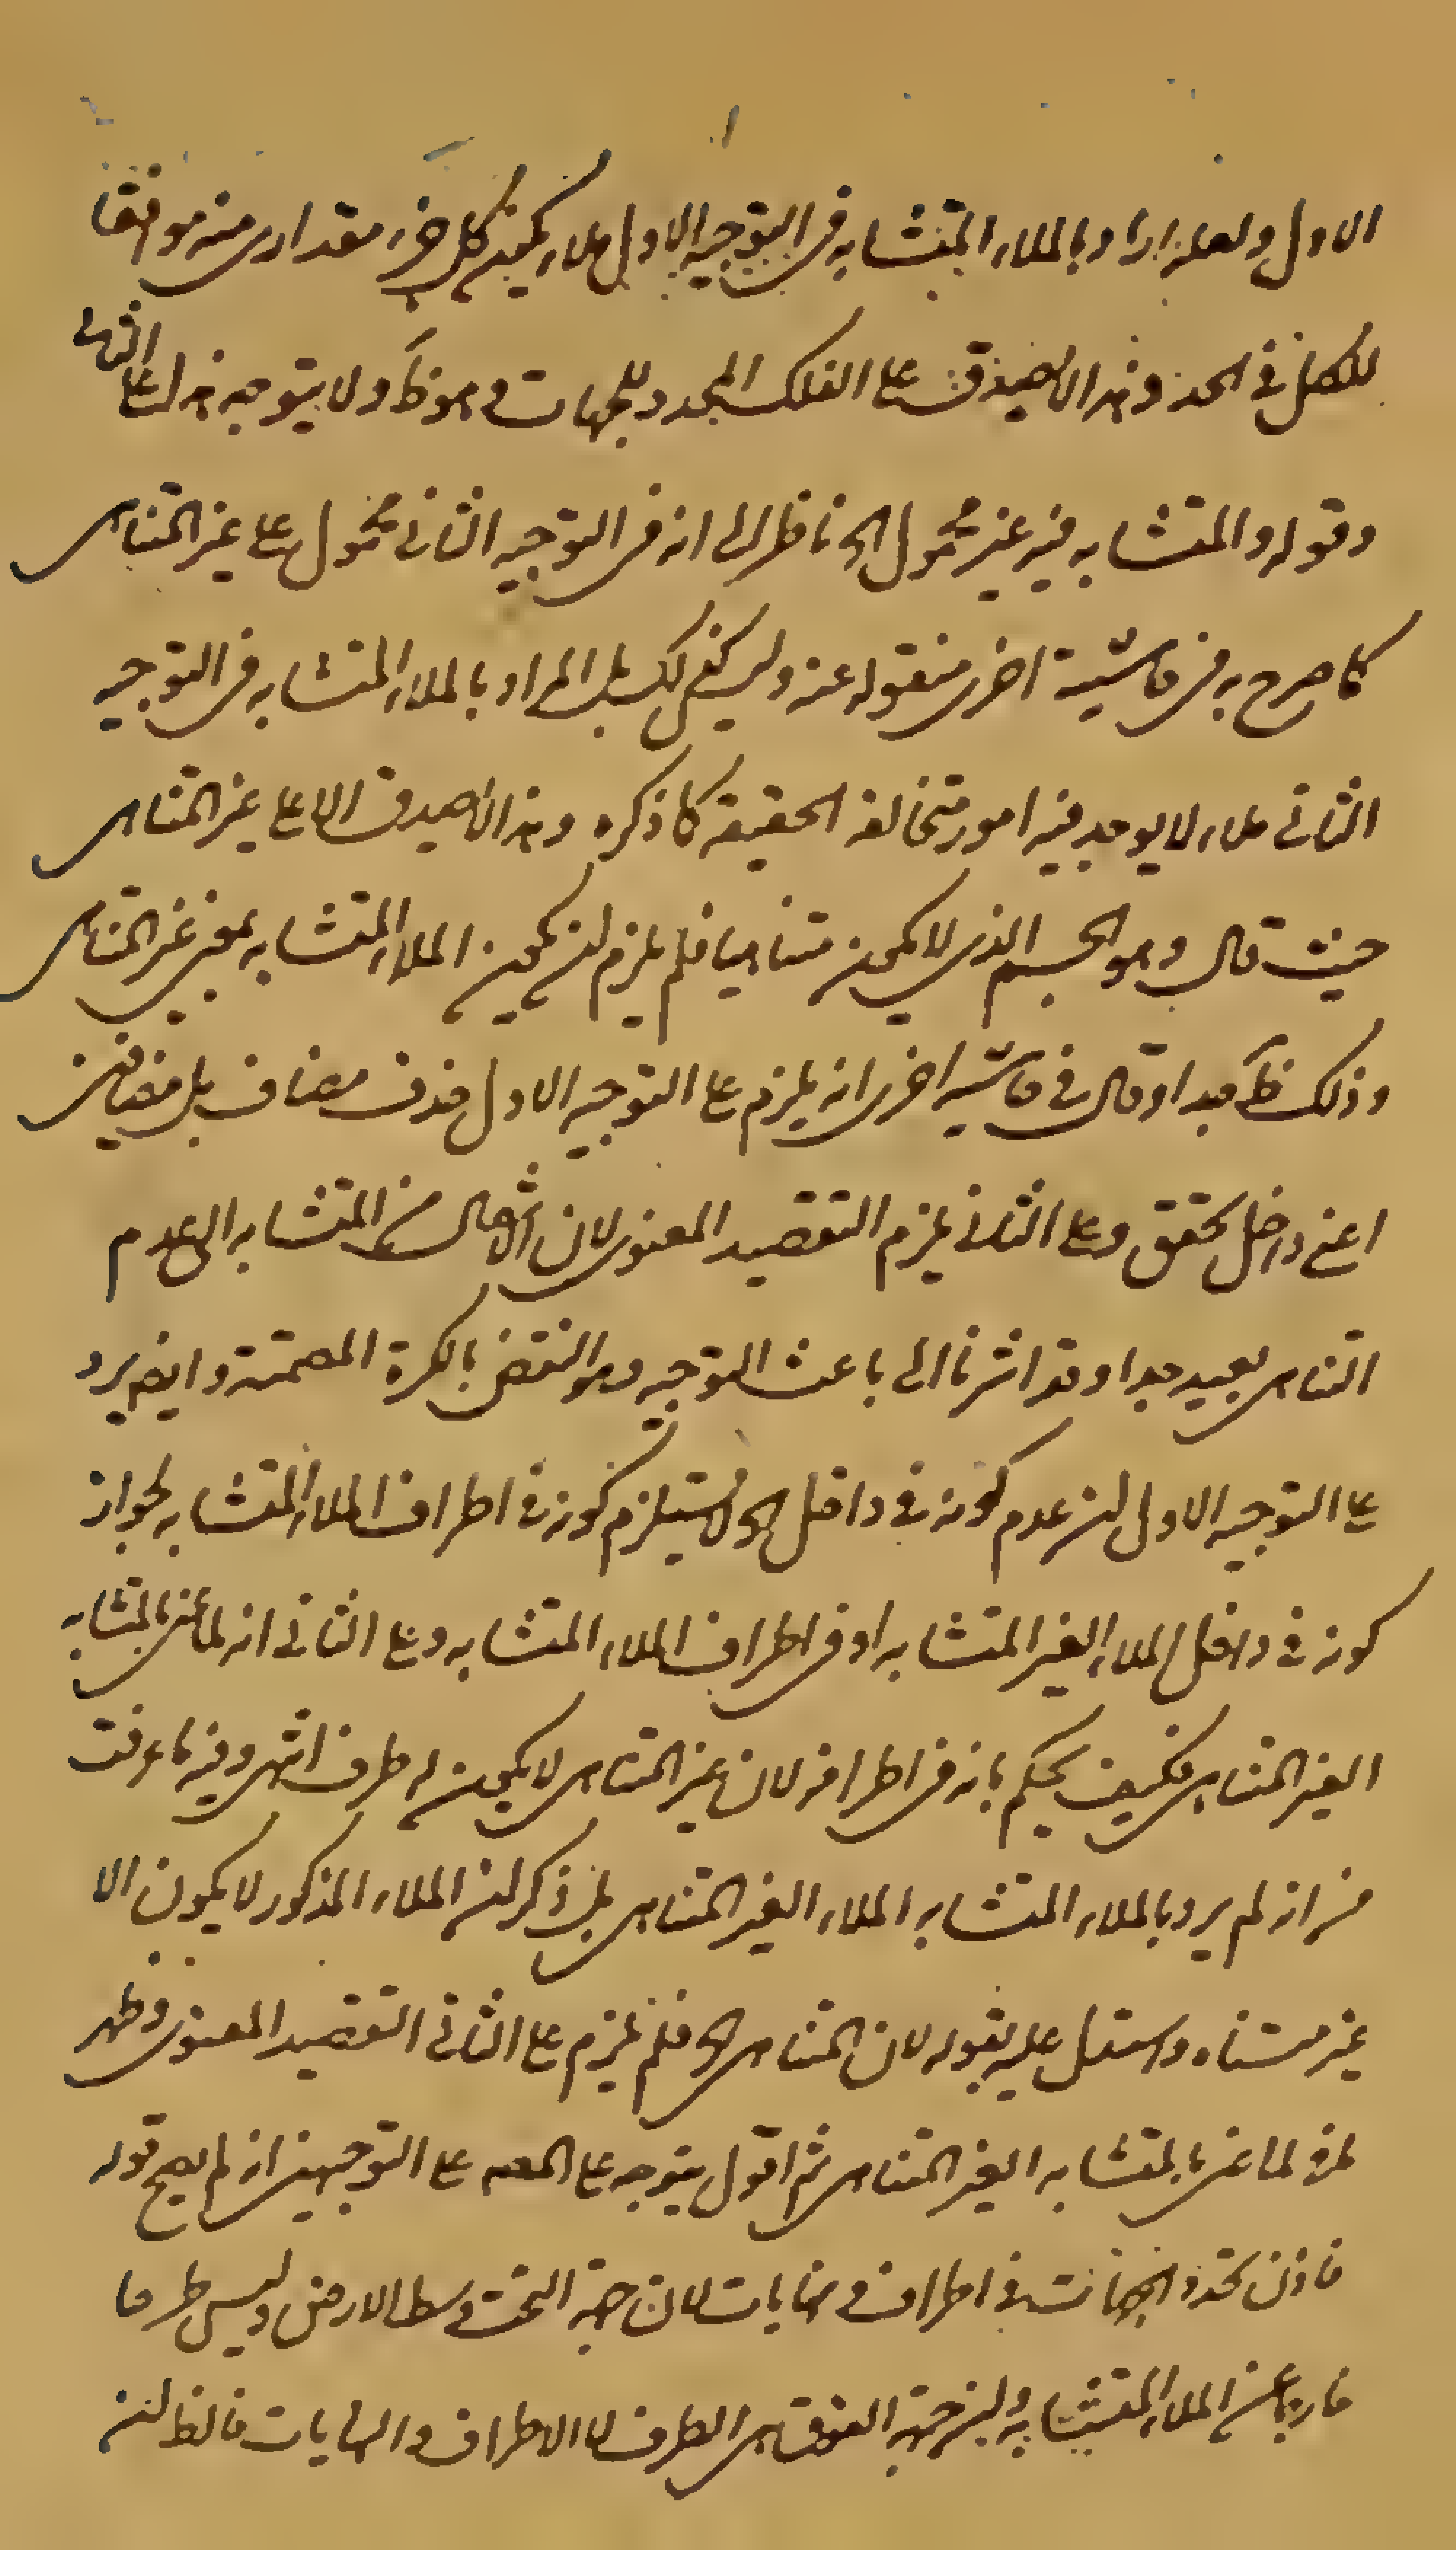 الاول ولعله اراد بالملاء المتشابه فى التوجيه الاول ملاء يكون كل جزء مقدارى منه موافقا
للكل فى الحد وهذا لا يصدق على الفلك المحدد للجهات وهو ظ ولا يتوجه هذا على الثانى
وقوله والمتشابه فيه غير محمول الخ ناظر الى انه فى التوجيه الثانى محمول على غير المتناهى
كما صرح به فى حاشية اخرى منقولة عنه وليس كذلك بل المراد بالملاء المتشابه فى التوجيه
الثانى ملاء لا يوجد فيه امور متخالفة الحقيقة كما ذكره وهذا لا يصدق الا على غير المتناهى
حيث قال وهو الجسم الذى لا يكون متناهيا فلم يلزم ان يكون الملاء المتشابه بمعنى غير المتناهى
وذلك ظ جدا وقال فى حاشية اخرى انه يلزم على التوجيه الاول حذف مضاف بل مضافين
اعنى داخل تحقق وعلى الثانى يلزم التعقيد المعنوى لان الانتقال من المتشابه الى عدم
التناهى بعيد جدا وقد اشرنا الى باعث التوجيه وهو النقض بالكرة المصمتة وايضا يرد
على التوجيه الاول ان عدم كونه فى داخل الخ لا يستلزم كونه فى اطراف الملاء المتشابه لجواز
كونه فى داخل الملاء الغير المتشابه او فى اطراف الملاء المتشابه وعلى الثانى انه لما عنى بالمتشابه
الغير المتناهى فكيف يحكم بانه فى اطرافه لان غير المتناهى لا يكون له طرف انتهى وفيه ما عرفت
من انه لم يرد بالملاء المتشابه الملاء الغير المتناهى بل ذكر ان الملاء المذكور لا يكون الا
غير متناه واستدل عليه بقوله لان المتناهى الخ فلم يلزم على الثانى التعقيد المعنوى وظهر
لما عنى بالمتشابه الغير المتناهى ثم اقول يتوجه على المص على التوجيهين انه لم يصح قوله
فاذن تحدد الجهات فى اطراف ونهايات لان جهة التحت وسط الارض وليس طرفا
خارجا عن الملاء المتشابه وان جهة الفوق هى الطرف لا الاطراف والنهايات فالظ ان